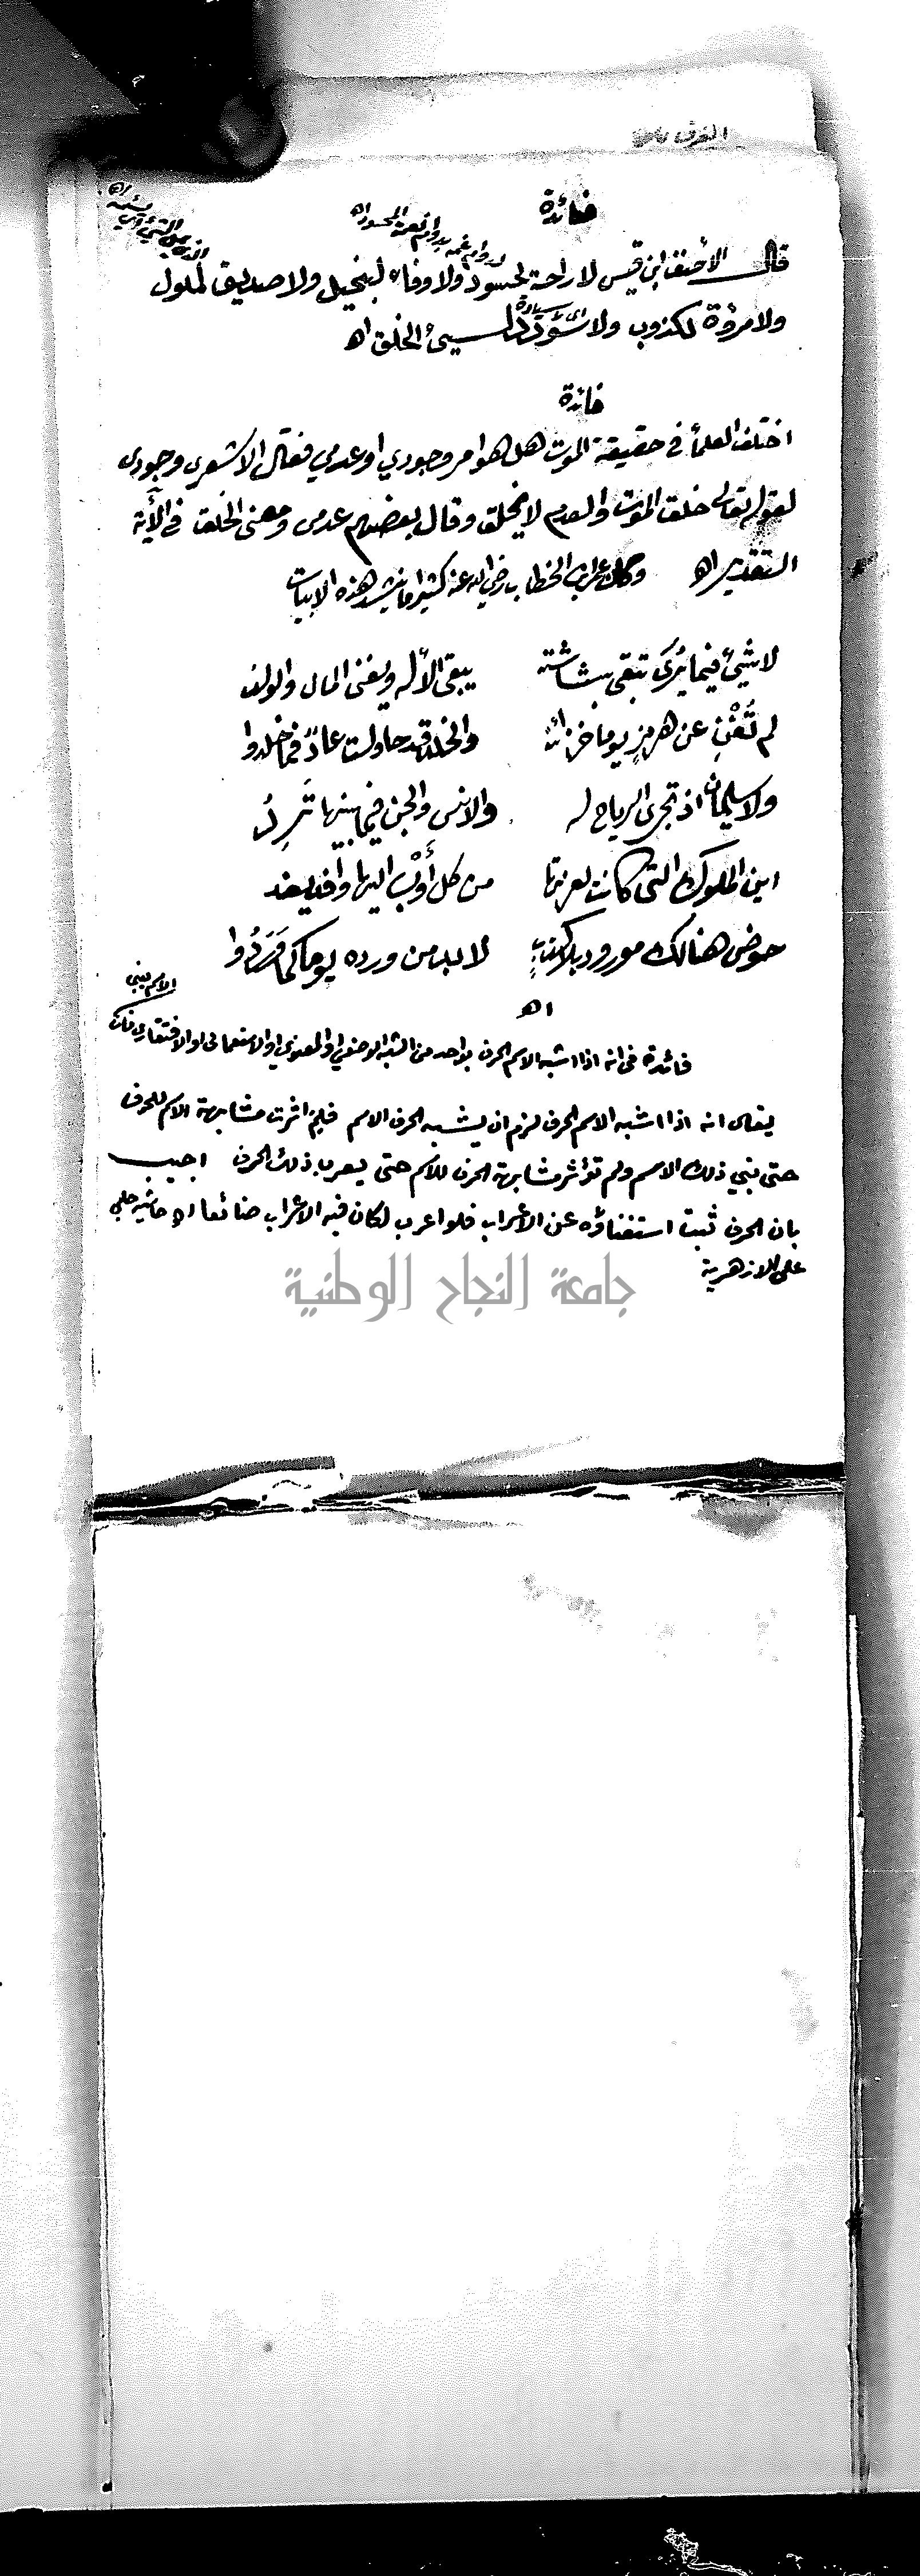 فائدة
لدوام غمه بدوام نعمة المحسود اه
الذي يمل الشيء اي يسئمه اه
قال الأحنف ابن قيس لا راحة لحسود ولا وفاء لبخيل ولا صديق لملول
اي سيادة
ولا مروّة لكذوب ولا سُؤدَد لسيئ الخلق اه
فائدة
اختلف العلمأ في حقيقة الموت هل هو امر وجودي او عدمي فقال الاشعري وجودي
لقوله تعالى خلق الموت والعدم لا يخلق وقال بعضهم عدمي ومعنى الخلق في الأية
التقدير اه وكان عمر ابن الخطاب رضي الله عنه كثيرا ما ينشد هذه الابيات
لا شيئ فيما يُرَى تبقى بشاشته يبقى الأله ويفنى المال والولد
لم تُغْنِ عن هرمزٍ يوما خزائنه والخلد قد حاولت عادٌ فما خلدوا
ولا سليمان اذ تجري الرياح له والانس والجن فيما بينها تَرِدُ
اين الملوك التي كانت لعزتها من كل أَوْبٍ اليها وافد يفد
حوض هنالك مورود بلا كذبٍ لا بد من ورده يوما كما وَرَدُوا
اه
الاسم يبني
فائدة في انه اذا اشبه الاسم الحرف بواحد من الشبه الوضعي او المعنوي او الاستعمالي او الافتقاري فان
يقال انه اذا اشبه الاسم الحرف لزم ان يشبه الحرف الاسم فلِمَ اثرت مشابهة الاسم للحرف
حتى بني ذلك الاسم ولم تؤثر مشابهة الحرف للاسم حتى يعرب ذلك الحرف اجيب
بان الحرف ثبت استغناؤه عن الاعراب فلو اعرب لكان فيه الاعراب ضائعا اه حاشية حلبي
على الازهرية
جامعة النجاح الوطنية